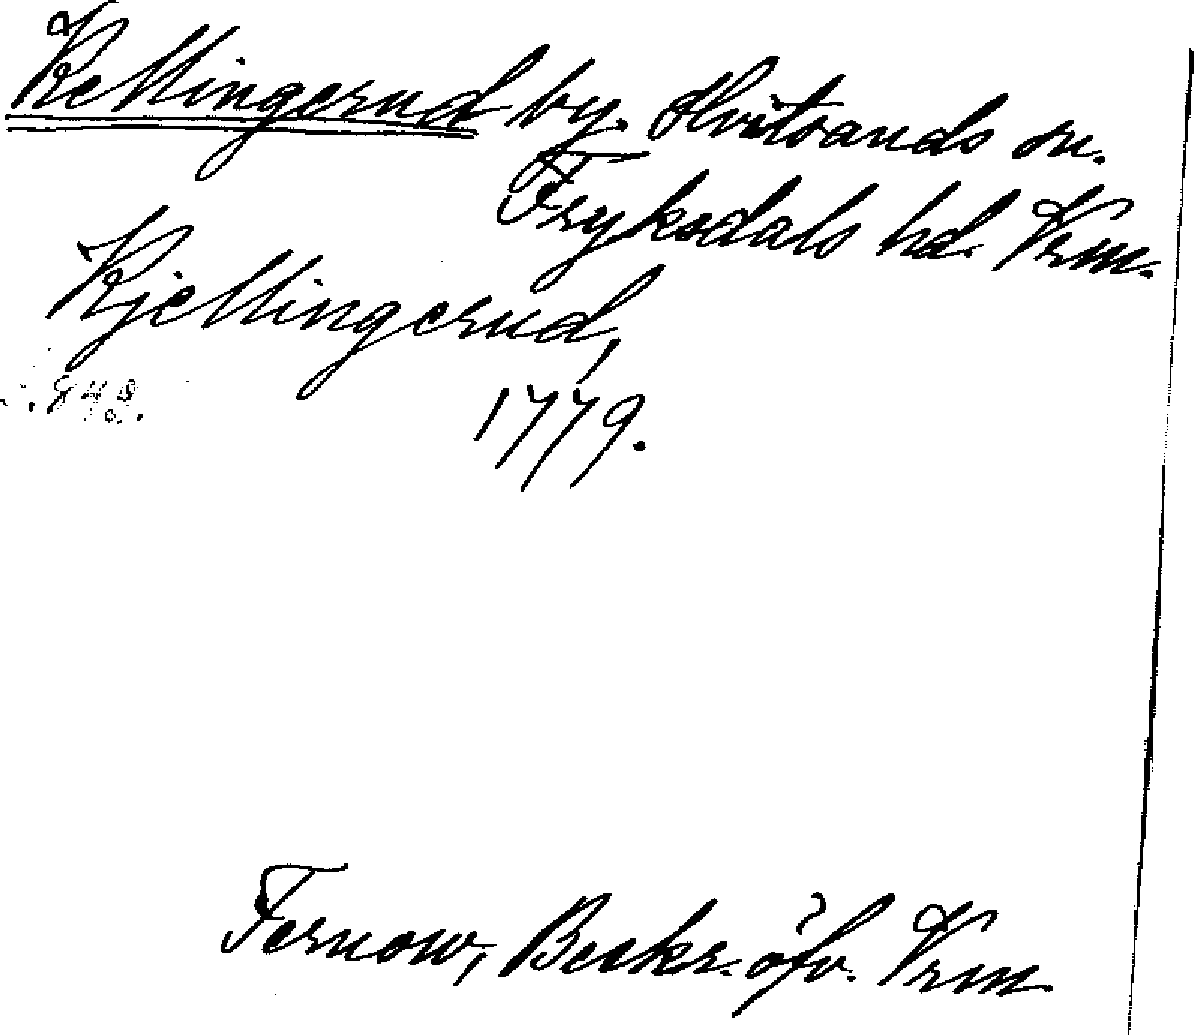 Kettingerud by. Hvitsands sn.
Fryksdals hd. Vrm.
Kjettingerud,
1779.
Fernow, Beskr. öfv. Vrm